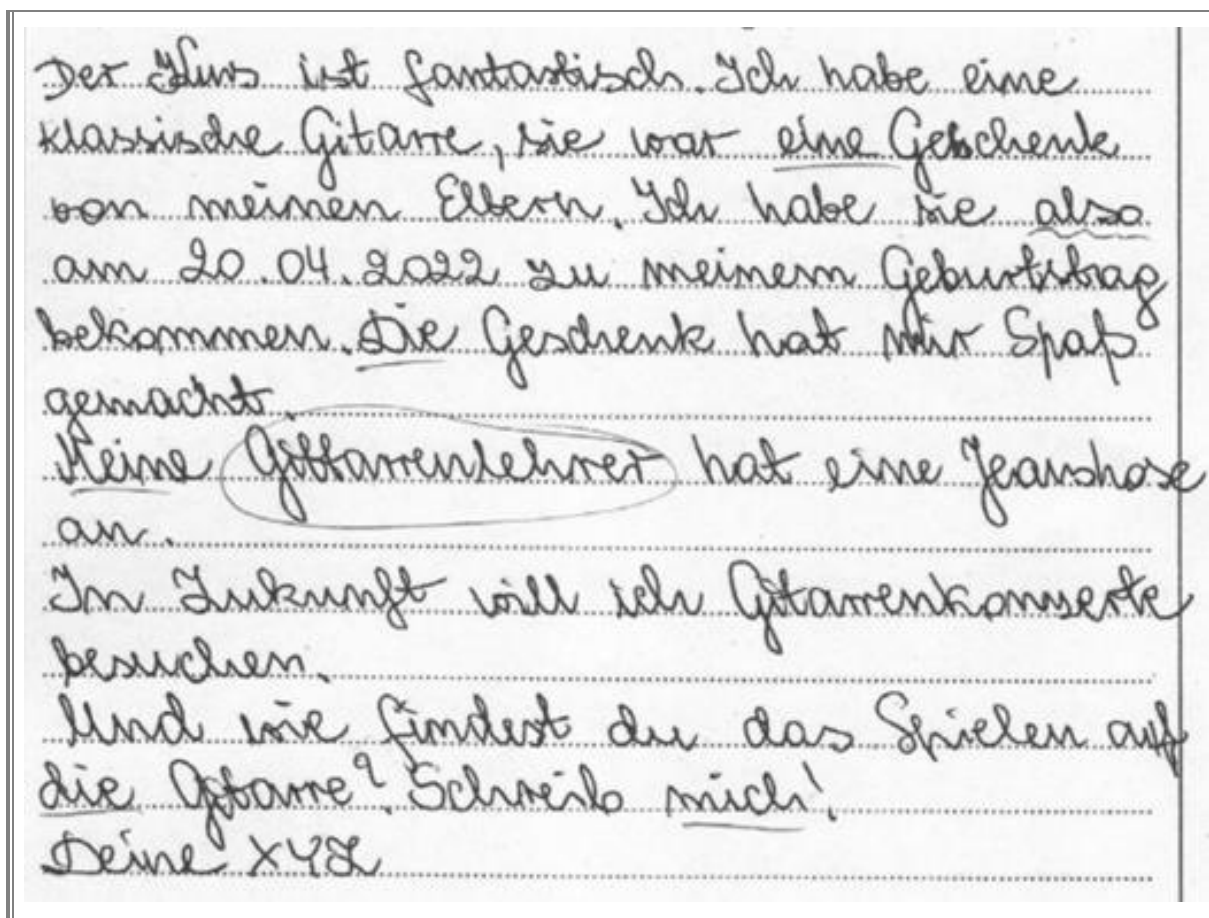 Der Kurs ist fantastisch. Ich habe eine
klassische Gitarre, sie war eine Geschenk
von meinen Eltern. Ich habe sie also
am 20.04.2022 zu meinem Geburtstag
bekommen. Die Geschenk hat mir Spaß
gemacht.
Meine Gittarrenlehrer hat eine Jeanshose
an.
In Zukunft will ich Gitarrenkonzerte
besuchen.
Und wie findest du das Spielen auf
die Gitarre? Schreib mich!
Deine XYZ